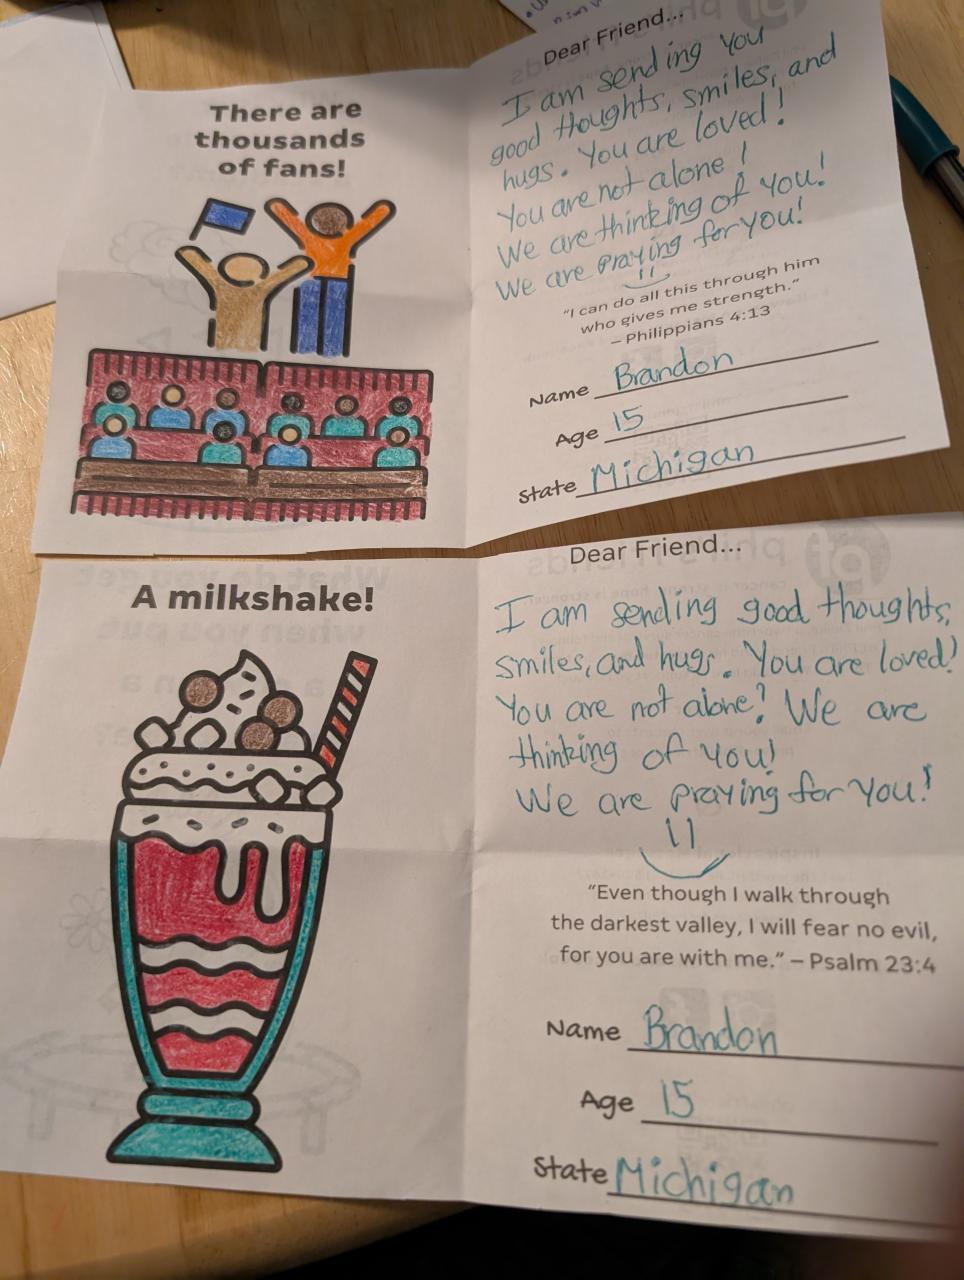 There are
thousands
of fans!
Dear Friend...
I am sending you
good thoughts, smiles, and
hugs. You are loved!
You are not alone!
We are thinking of you!
We are praying for you!
"I can do all this through him
who gives me strength."
– Philippians 4:13
Name Brandon
Age 15
State Michigan
A milkshake!
Dear Friend...
I am sending good thoughts,
smiles, and hugs. You are loved!
You are not alone! We are
thinking of you!
We are praying for you!
"Even though I walk through
the darkest valley, I will fear no evil,
for you are with me." – Psalm 23:4
Name Brandon
Age 15
State Michigan